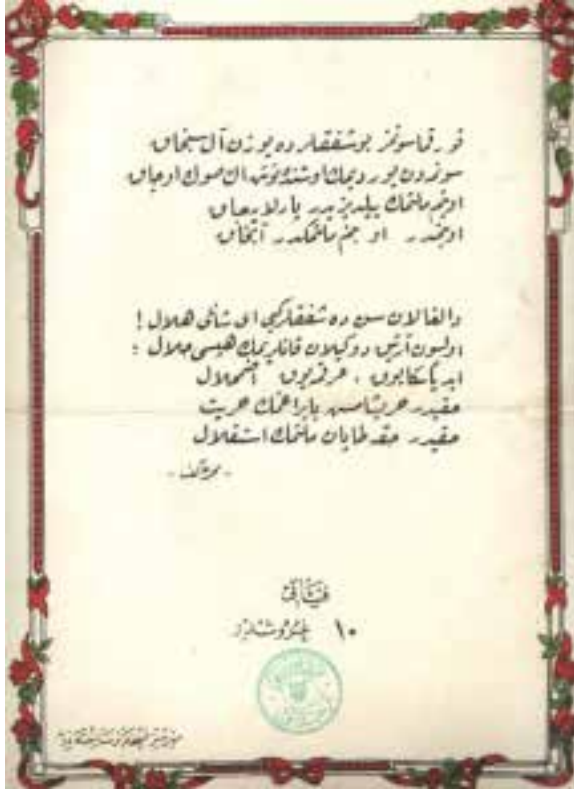 قورقما سونمز بو شفقلرده يوزن آل سنجاق
سونمدن يورديمك اوستنده توتن ال صوك اوجاق
او بنم ملتمك ييلديزيدر پارلايه‌جاق
او بنمدر او بنم ملتمكدر آنجاق
دالغالان سن ده شفقلر كبى اى شانلى هلال !
اولسون آرتيق دوكيلان قانلريمك هپسى حلال :
ابدياً سكا يوق ، عرقمه يوق اضمحلال
حقيدر حر ياشامش بايراغمك حريت
حقيدر حقه طاپان ملتمك استقلال
- محمد عاكف -
فيئاتى
١٠ غروشدر